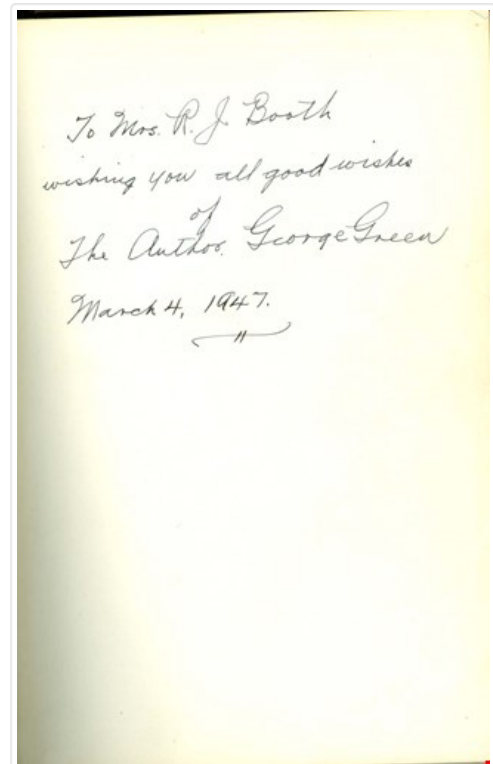 To Mrs. R. J. Booth
wishing you all good wishes
of
The Author. George Green
March 4, 1947.